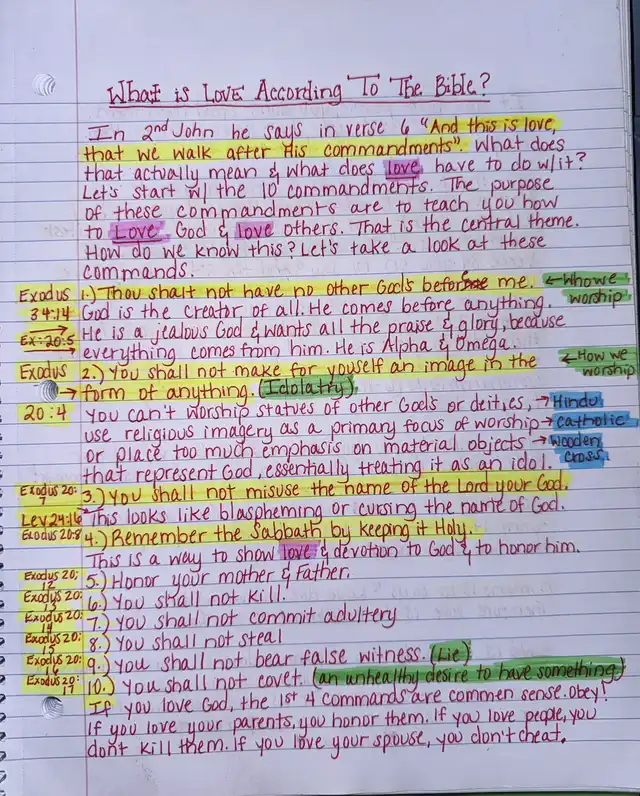 What is Love According To The Bible?
In 2nd John he says in verse 6 "And this is love,
that we walk after His commandments". What does
that actually mean & what does love have to do w/it?
Let's start w/ the 10 commandments. The purpose
of these commandments are to teach you how
to Love God & love others. That is the central theme.
How do we know this? Let's take a look at these
commands.
Exodus 34:14 1.) Thou shalt not have no other God's before me. ← Who we worship
God is the creator of all. He comes before anything.
Ex: 20:5 → He is a jealous God & wants all the praise & glory, because
everything comes from him. He is Alpha & Omega.
Exodus 20:4 → 2.) You shall not make for youself an image in the ← How we worship
form of anything. (Idolatry).
You can't worship statues of other God's or deities, → Hindu
use religious imagery as a primary focus of worship → catholic
or place too much emphasis on material objects → wooden cross
that represent God, essentially treating it as an idol.
Exodus 20:7 3.) You shall not misuse the name of the Lord your God.
Lev 24:16 This looks like blaspheming or cursing the name of God.
Exodus 20:8 4.) Remember the Sabbath by keeping it Holy.
This is a way to show love & devotion to God & to honor him.
Exodus 20:12 5.) Honor your mother & Father.
Exodus 20:13 6.) You shall not kill.
Exodus 20:14 7.) You shall not commit adultery
Exodus 20:15 8.) You shall not steal
Exodus 20:16 9.) you shall not bear false witness. (Lie)
Exodus 20:17 10.) You shall not covet. (an unhealthy desire to have something)
If you love God, the 1st 4 commands are commen sense. Obey!
If you love your parents, you honor them. If you love people, you
don't kill them. If you love your spouse, you don't cheat.